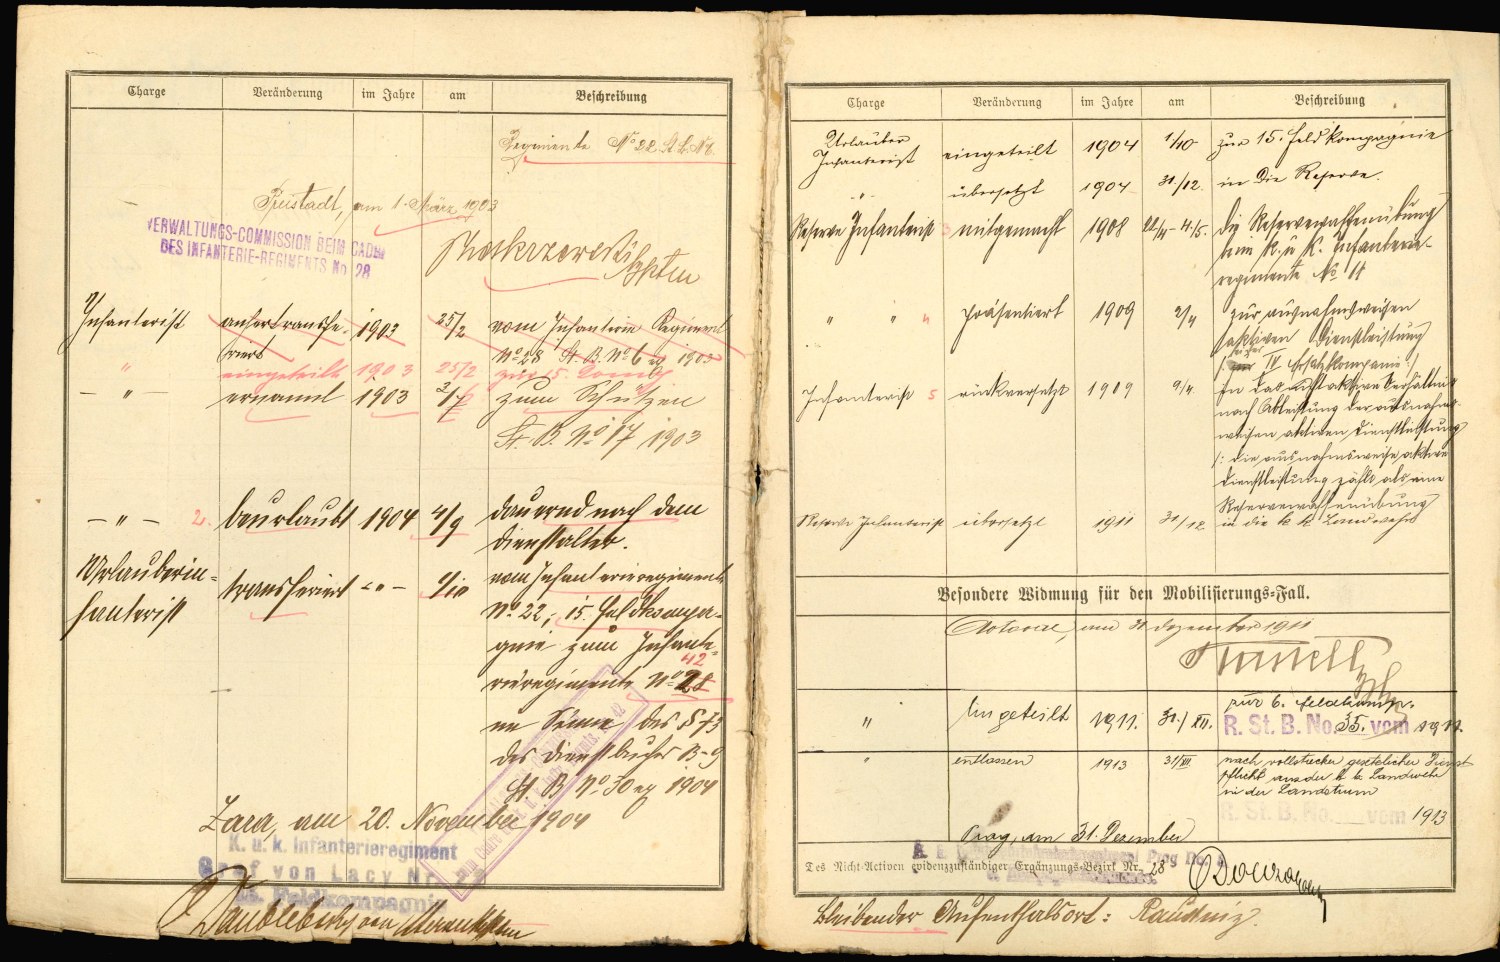 Charge Veränderung im Jahre am Beschreibung
Regimente No 22 St. B. No
am 1. März 1903
VERWALTUNGS-COMMISSION BEIM CADER
DES INFANTERIE-REGIMENTS No. 28
Infanterist 1903 25/2 vom Infanterie Regiment
No 28 St. B. No 6 ex 1903
" eingeteilt 1903 25/2 zur 15. Comp
— " — ernannt 1903 zum Schützen
St. B. No 17 1903
— " — 2. beurlaubt 1904 4/9 dauernd nach dem
Dienstalter.
Urlauberin-
fanterist transferiert — " — 1/10 vom Infanterieregimente
No 22, 15. Feldkompa-
gnie zum Infante-
rieregimente No 42 28
im Sinne des § 73
des Dienstbuches
St. B. No 30 ex 1904
Zara, am 20. November 1904
K. u. k. Infanterieregiment
Graf von Lacy Nr.
15. Feldkompagnie
Charge Veränderung im Jahre am Beschreibung
Urlauber
Infanterist eingeteilt 1904 1/10 zur 15. Feldkompagnie
" übersetzt 1904 31/12. in die Reserve.
Reserve Infanterist 3 mitgemacht 1908 die Reservewaffenübung
beim k. u. k. Infanterie-
regimente No 11
" " 4 präsentiert 1909 2/4 zur ausnahmsweisen
aktiven Dienstleistung
IV Ersatzkompanie :/
Infanterist 5 rückversetzt 1909 9/4. in das nichtaktive Verhältnis
nach Ableistung der ausnahms-
weisen aktiven Dienstleistung
/: die ausnahmsweise aktive
Dienstleistung zählt als eine
Reservewaffenübung
Reserve Infanterist übersetzt 1911 31/12 in die k. k. Landwehr
Besondere Widmung für den Mobilisierungs-Fall.
am 31 Dezember 1911
" Eingeteilt 1911. 31./XII. zur 6. Feldkomp.
R. St. B. No. 35. vom 1911.
" entlassen 1913 31/XII nach vollstreckter gesetzlicher Dienst
pflicht aus der k. k. Landwehr
in der Landsturm
R. St. B. No. vom 1913
Prag, am 31. Dezember
Des Nicht-Activen evidenzzuständiger Ergänzungs-Bezirk Nr. 28
Bleibender Aufenthalsort: Raudnitz.